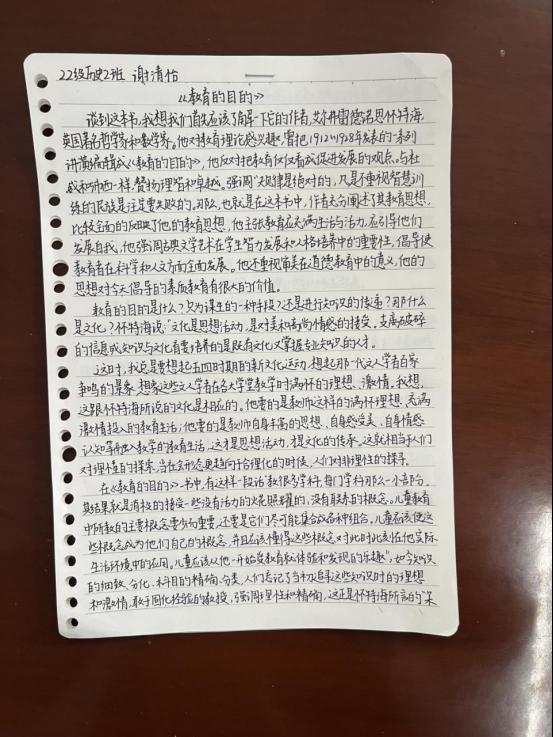 22级历史2班 谢清怡
《教育的目的》
谈到这本书,我想我们首先应该了解一下它的作者,艾尔弗雷德诺思怀特海,
英国著名哲学家和数学家。他对教育理论感兴趣,曾把1912~1928年发表的一系列
讲演编辑成《教育的目的》,他反对把教育仅仅看成促进发展的观点。与杜
威和纳西一样,赞扬理智和卓越。强调"规律是绝对的,凡是不重视智慧训
练的民族是注定要失败的。那么,也就是在这本书中,作者充分阐述了其教育思想,
比较全面的反映了他的教育思想,他主张教育应充满生活与活力,应引导他们
发展自我,他强调古典文学艺术在学生智力发展和人格培养中的重要性,倡导使
教育者在科学和人文方面全面发展。他不重视审美在道德教育中的意义,他的
思想对今天倡导的素质教育有很大的价值。
教育的目的是什么?只为谋生的一种手段?还是进行知识的传递?那什么
是文化?怀特海说:"文化是思想活动,是对美和高尚情感的接受。支离破碎
的信息或知识与文化育要培养的是既有文化又掌握专业知识的人才。
这时,我总是要想起五四时期的新文化运动,想起那一代文人学者百家
争鸣的景象,想象这些文人学者在各大学堂教学时满怀的理想、激情,我想,
这跟怀特海所说的文化是相应的。他要的是教师这样的满怀理想、充满
激情投入的教育生活;他要的是教师自身丰富的思想、自身感受美、自身情感
认知等融入教学的教育生活,这才是思想活动,才是文化的传承。这就相当于人们
对理性的探索,当社会形态更趋向于合理化的时候,人们对非理性的探寻。
在《教育的目的》书中,有这样一段话:教很多学科,每门学科那么一小部分,
其结果就是消极的接受一些没有活力的火花照耀的,没有联系的概念。儿童教育
中所教的主要概念要少而重要,还要是它们尽可能集合成各种组合。儿童应该使这
些概念成为他们自己的概念,并且应该懂得这些概念对此时此刻在他实际
生活环境中的应用。儿童应该从他一开始受教育就体验和发现的乐趣",如今知识
的细致、分化、科目的精确、分类,人们忘记了当初追寻这些知识时的理想
和激情,敢于固化经验的教授,强调理性和精确,这正是怀特海所言的"呆